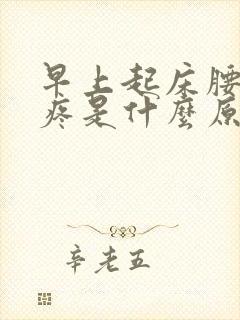 早上起床腰
疼是什麼原
辛老五